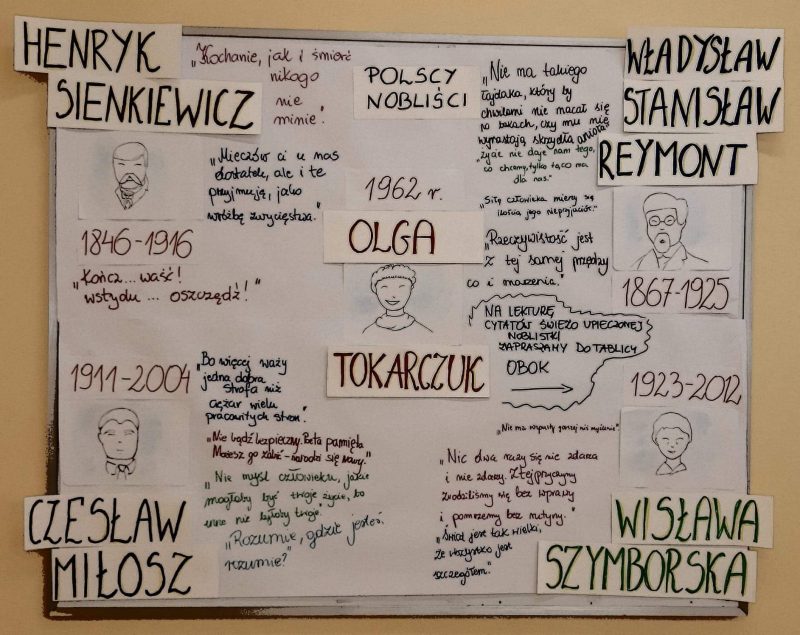 HENRYK
SIENKIEWICZ
„Kochanie, jak i śmierć
nikogo
nie
minie".
„Mieczów ci u nas
dostatek, ale i te
przyjmuję, jako
wróżbę zwycięstwa."
1846-1916
„Kończ...waść!
wstydu ... oszczędź!"
POLSCY
NOBLIŚCI
1962 r.
OLGA
TOKARCZUK
„Nie ma takiego
łajdaka, który by
chwilami nie macał się
po bokach, czy mu nie
wyrastają skrzydła anioła"
„Życie nie daje nam tego,
co chcemy, tylko to, co ma
dla nas."
„Siłę człowieka mierzy się
ilością jego nieprzyjaciół."
„Rzeczywistość jest
z tej samej przędzy
co i marzenia."
WŁADYSŁAW
STANISŁAW
REYMONT
1867-1925
NA LEKTURĘ
CYTATÓW ŚWIEŻO UPIECZONEJ
NOBLISTKI
ZAPRASZAMY DO TABLICY
OBOK
1911-2004
„Bo więcej waży
jedna dobra
strofa niż
ciężar wielu
pracowitych stron".
„Nie bądź bezpieczny. Poeta pamięta
Możesz go zabić - narodzi się nowy."
„Nie myśl człowieku, jakie
mogłoby być twoje życie, bo
inne nie byłoby twoje.
„Rozumie, gdzie jesteś,
rozumie?"
CZESŁAW
MIŁOSZ
1923-2012
„Nie ma rozpusty gorszej niż myślenie".
„Nic dwa razy się nie zdarza
i nie zdarzy. Z tej przyczyny
zrodziliśmy się bez wprawy
i pomrzemy bez rutyny."
„Świat jest tak wielki,
że wszystko jest
szczegółem."
WISŁAWA
SZYMBORSKA